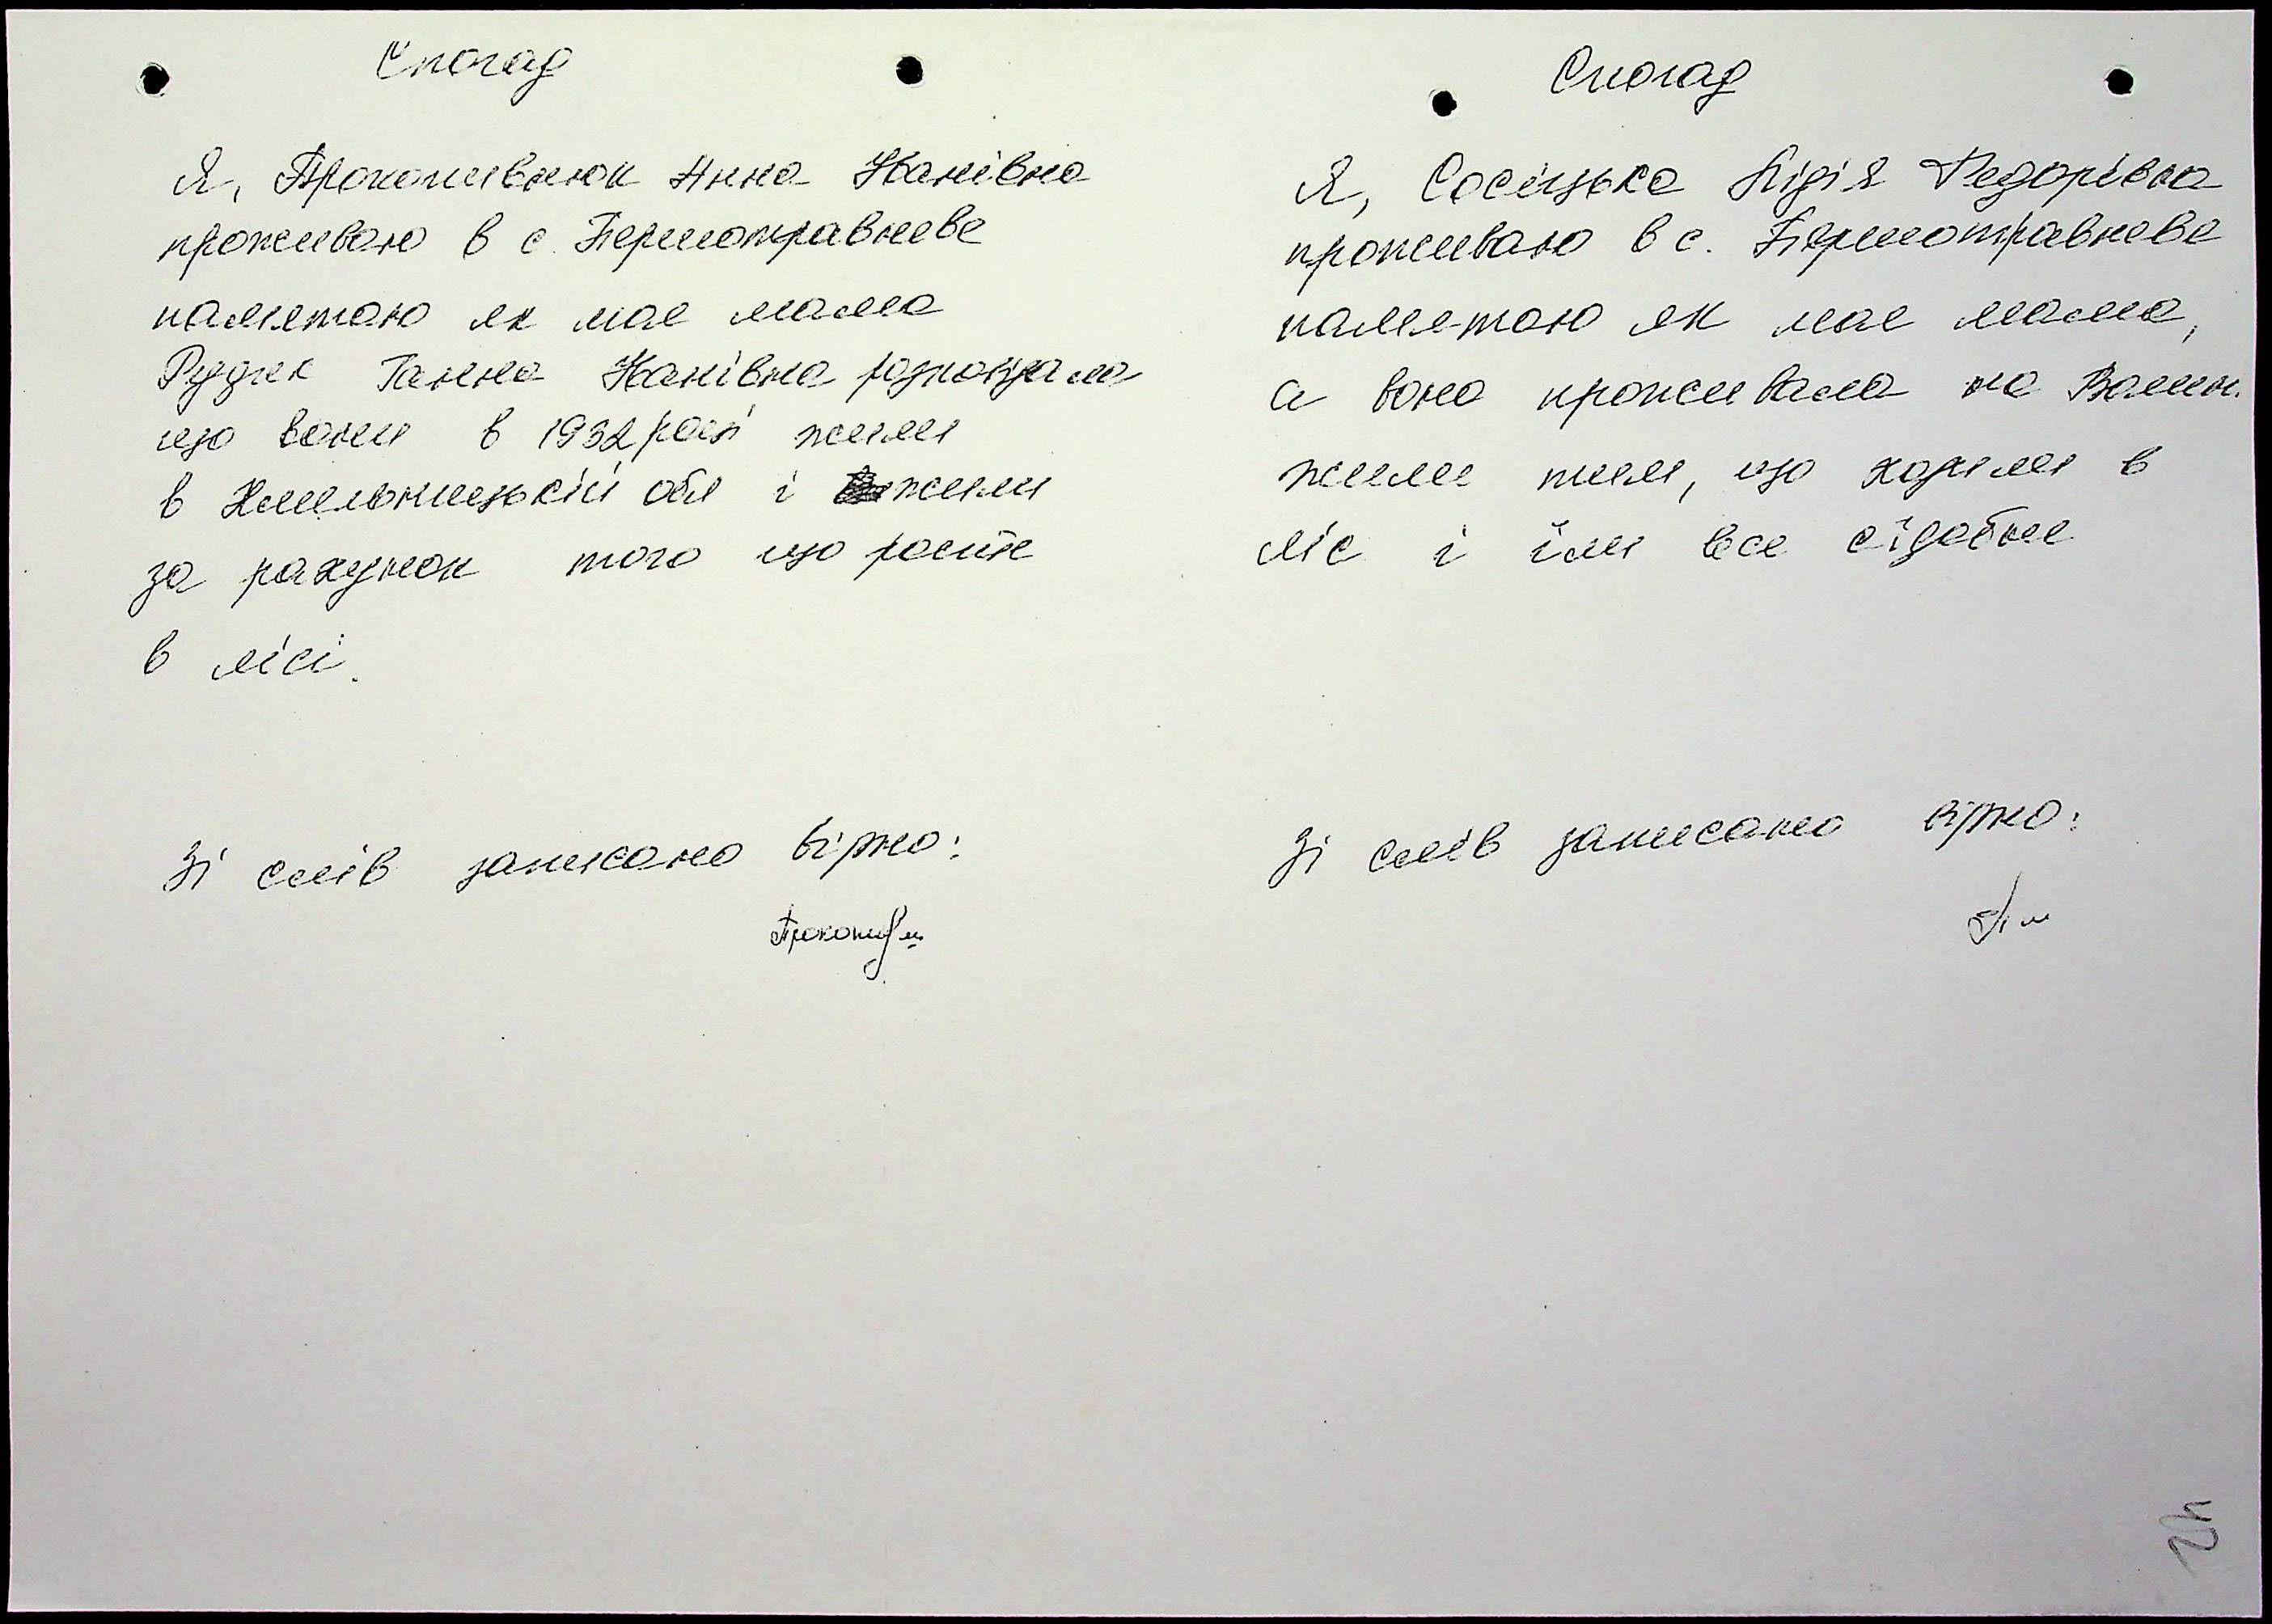 Спогад
Я, Прокопивнюк Анна Іванівна
проживаю в с. Першотравневе
памятаю як моє мама
Рудик Ганна Іванівна розповідала
що вони в 1932 році жили
в Хмельницькій обл і жили
за рахунок того що росте
в лісі.
Зі слів записано вірно:
Спогад
Я, Сосіцька Лідія Федорівна
проживаю в с. Першотравневе
памятаю як моє мама,
а вона проживала на Волин.
жили тим, що ходили в
ліс і їли все єїдобне
Зі слів записано вірно: